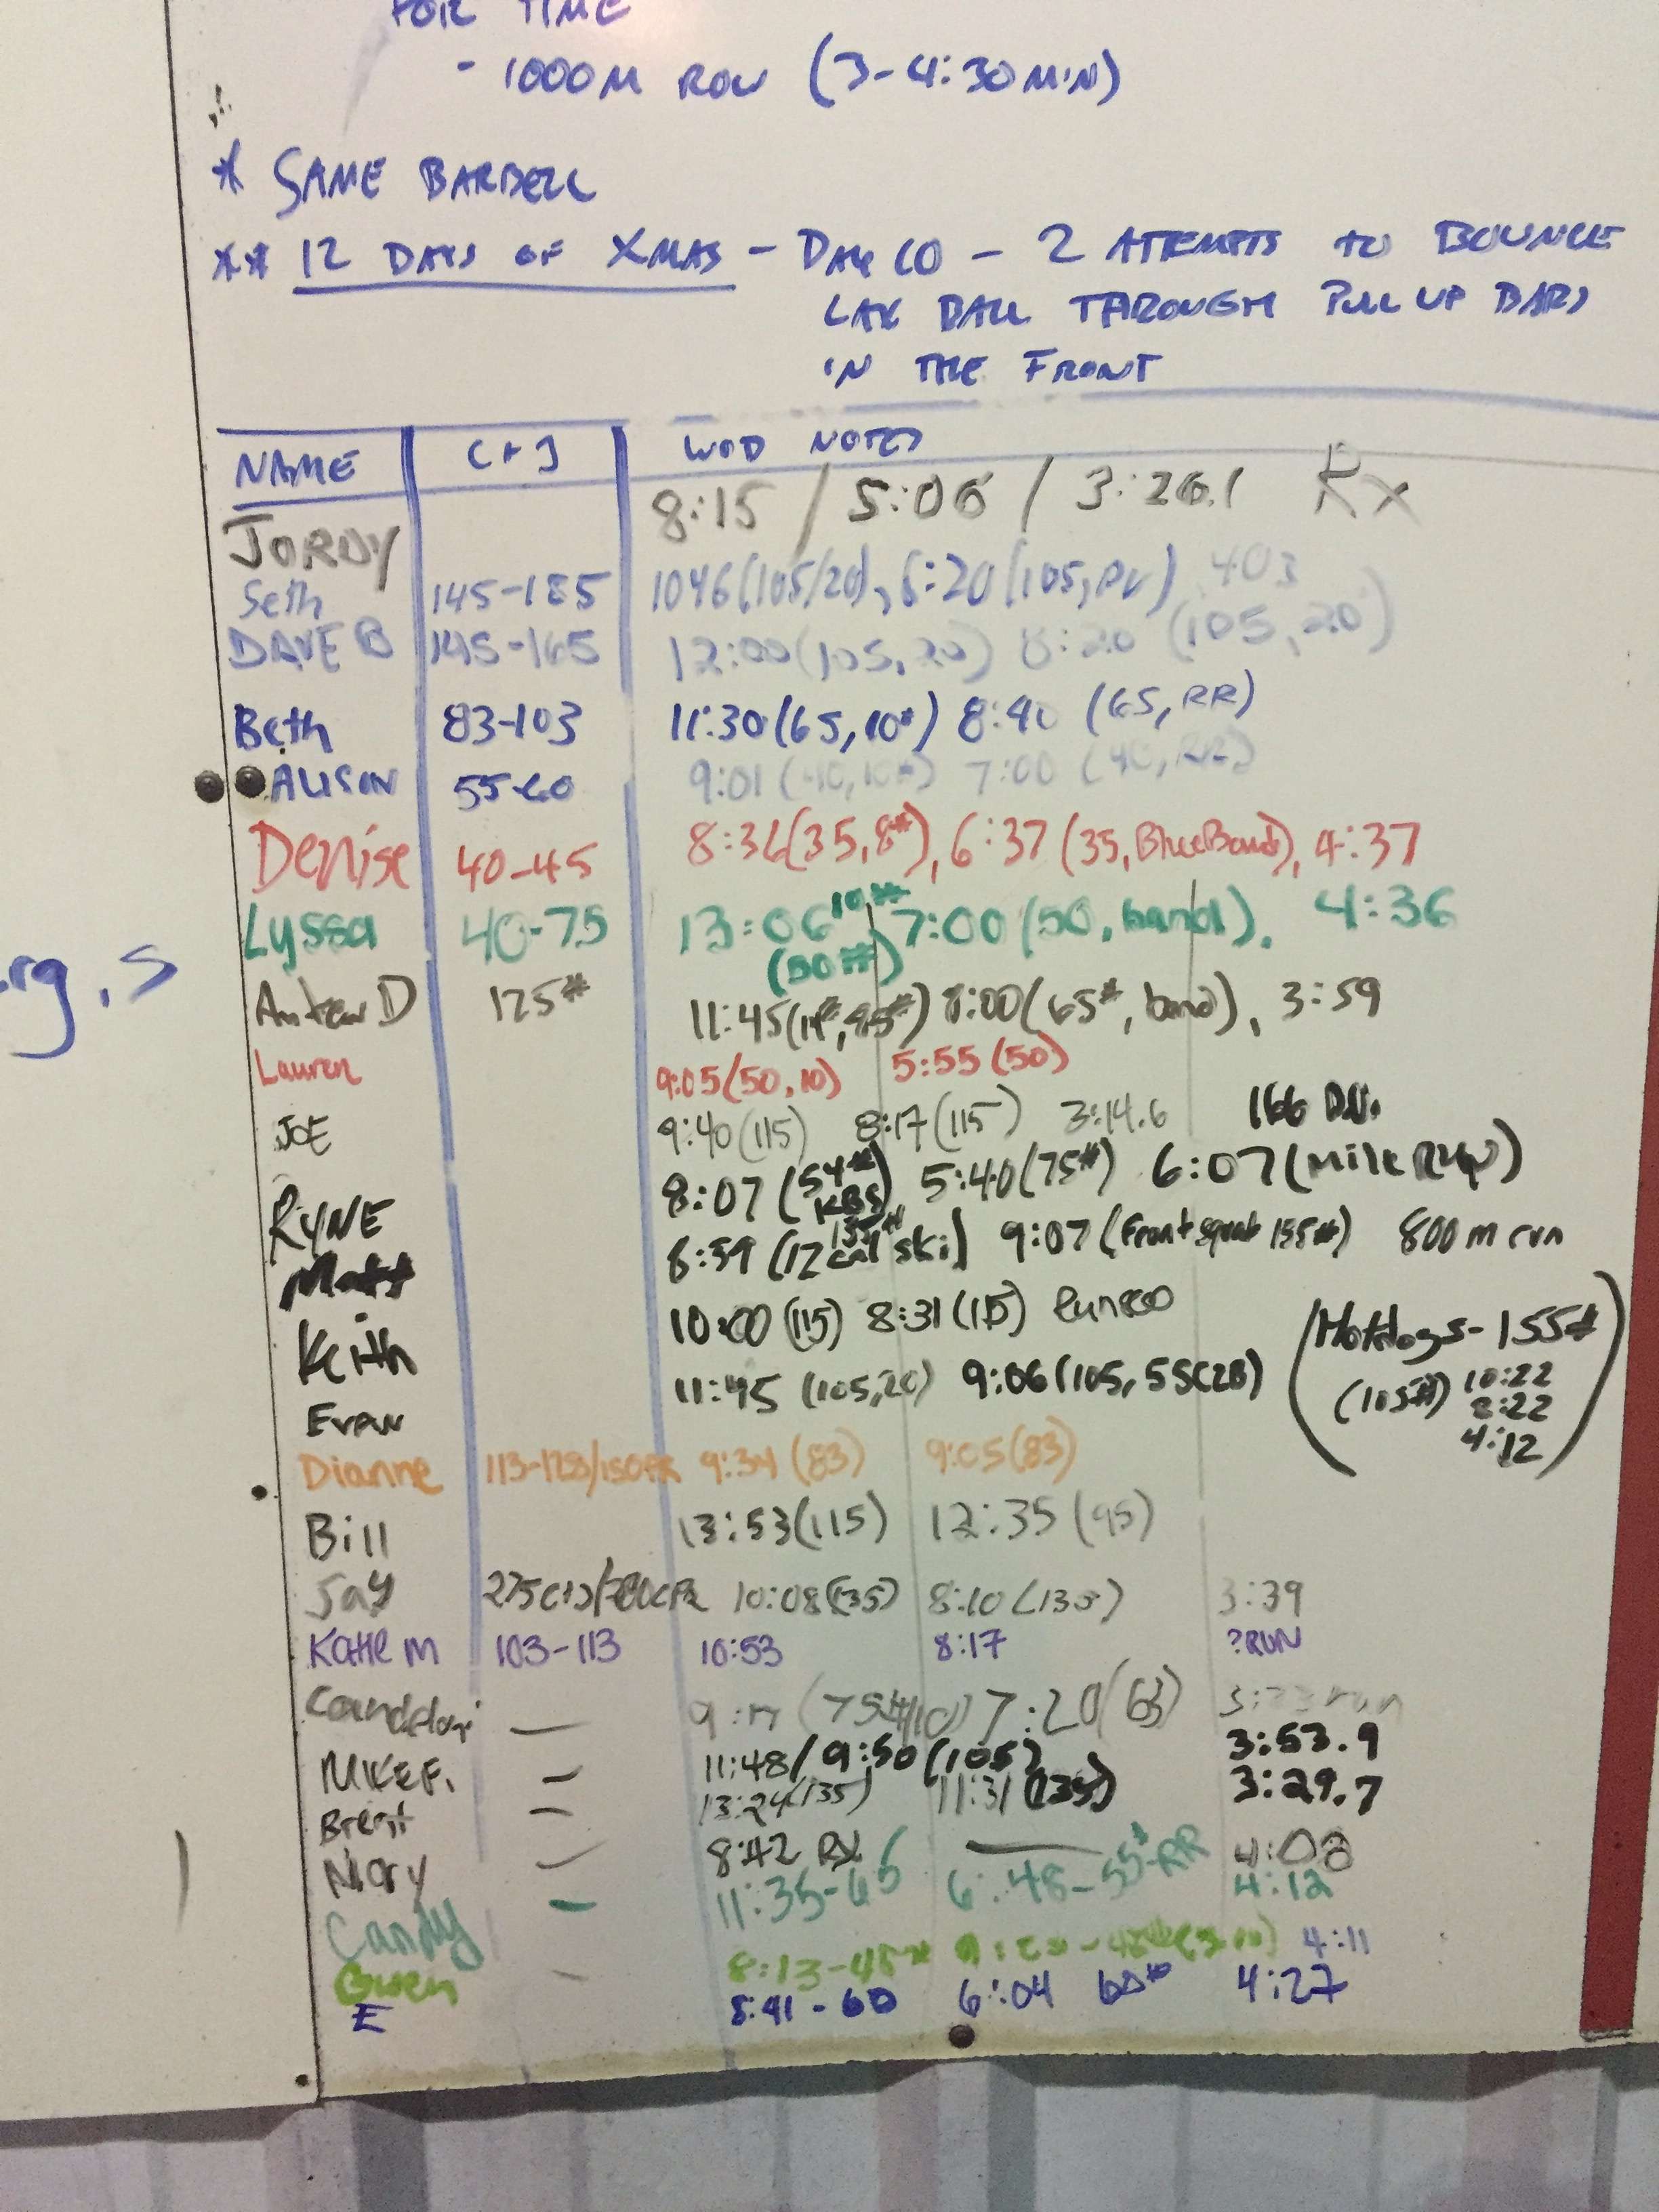 FOR TIME
- 1000M ROW (3-4:30MIN)
* SAME BARBELL
** 12 DAYS OF XMAS - DAY 10 - 2 ATTEMPTS TO BOUNCE
LAX BALL THROUGH PULL UP BARS
IN THE FRONT
NAME C+J WOD NOTES
JORDY 8:15 / 5:06 / 3:26.1 Rx
Seth 145-185 1046(105/20), 6:20(105,PU) 403
DAVE B 145-165 12:00(105,20) 8:20 (105,20)
Beth 83-103 11:30(65,10#) 8:40 (65,RR)
ALISON 55-60 9:01(40,10#) 7:00 (40,RR)
Denise 40-45 8:36(35,8#), 6:37(35,Blue Band), 4:37
Lyssa 40-75 13:06 10# 7:00(50,band), 4:36
(50#)
rg,s
D 125# 11:45(14#,85#) 8:00(65#,band), 3:59
Lauren 9:05(50,10) 5:55(50)
JOE 9:40(115) 8:17(115) 3:14.6 166 D.U.
RYNE 8:07(54# KBS) 5:40(75#) 6:07(Mile Run)
Matt 8:59 (12 cal ski) 135# 9:07(Front squat 155#) 800m run
Keith 10:00(115) 8:31(115) Run 800
(Hotdogs-155#
(105#) 10:22
8:22
4:12)
Evan 11:45 (105,20) 9:06(105,5SC2B)
Dianne 113-128/150PR 9:34(83) 9:05(83)
Bill 13:53(115) 12:35(95)
Jay 275C+J 10:08(135) 8:10(135) 3:39
Katie M 103-113 10:53 8:17 ?RUN
— 7:20(63) run
MIKE F. — 11:48/9:50(105) 3:53.9
Brent — 13:24(135) 11:31(135) 3:29.7
Mary — 8:42 RX — 4:08
Candy — 11:35-65 6:48-55#-RR 4:12
Gwen — 8:13-48# 4:11
E 8:41-60 6:04 60# 4:27